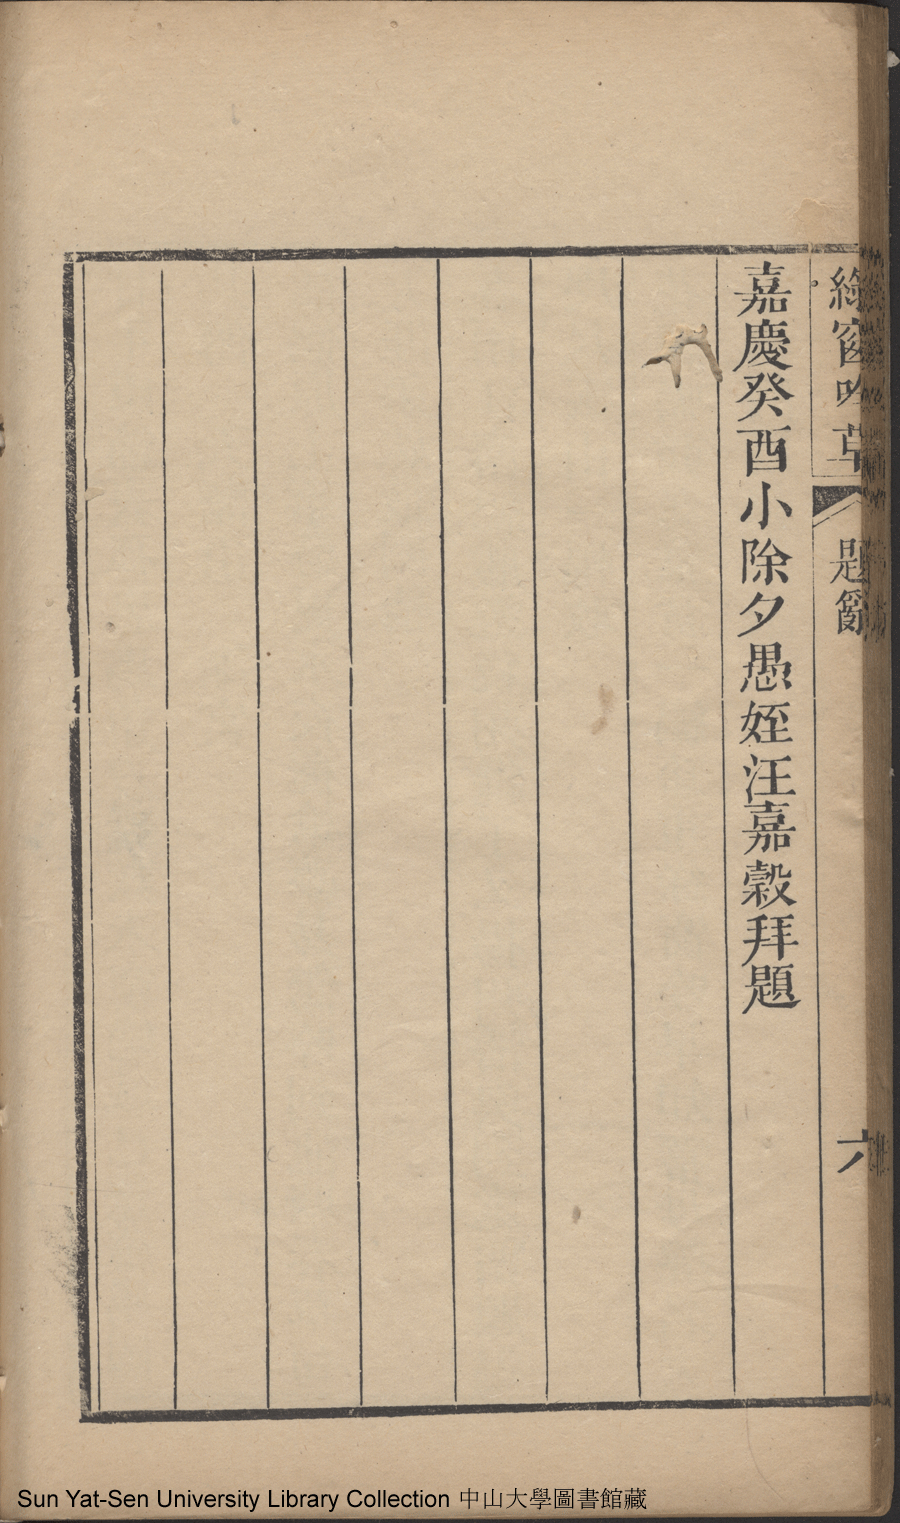 綺窗吟草
題詞
六
嘉慶癸酉小除夕愚姪汪嘉穀拜題
Sun Yat-Sen University Library Collection 中山大學圖書館藏